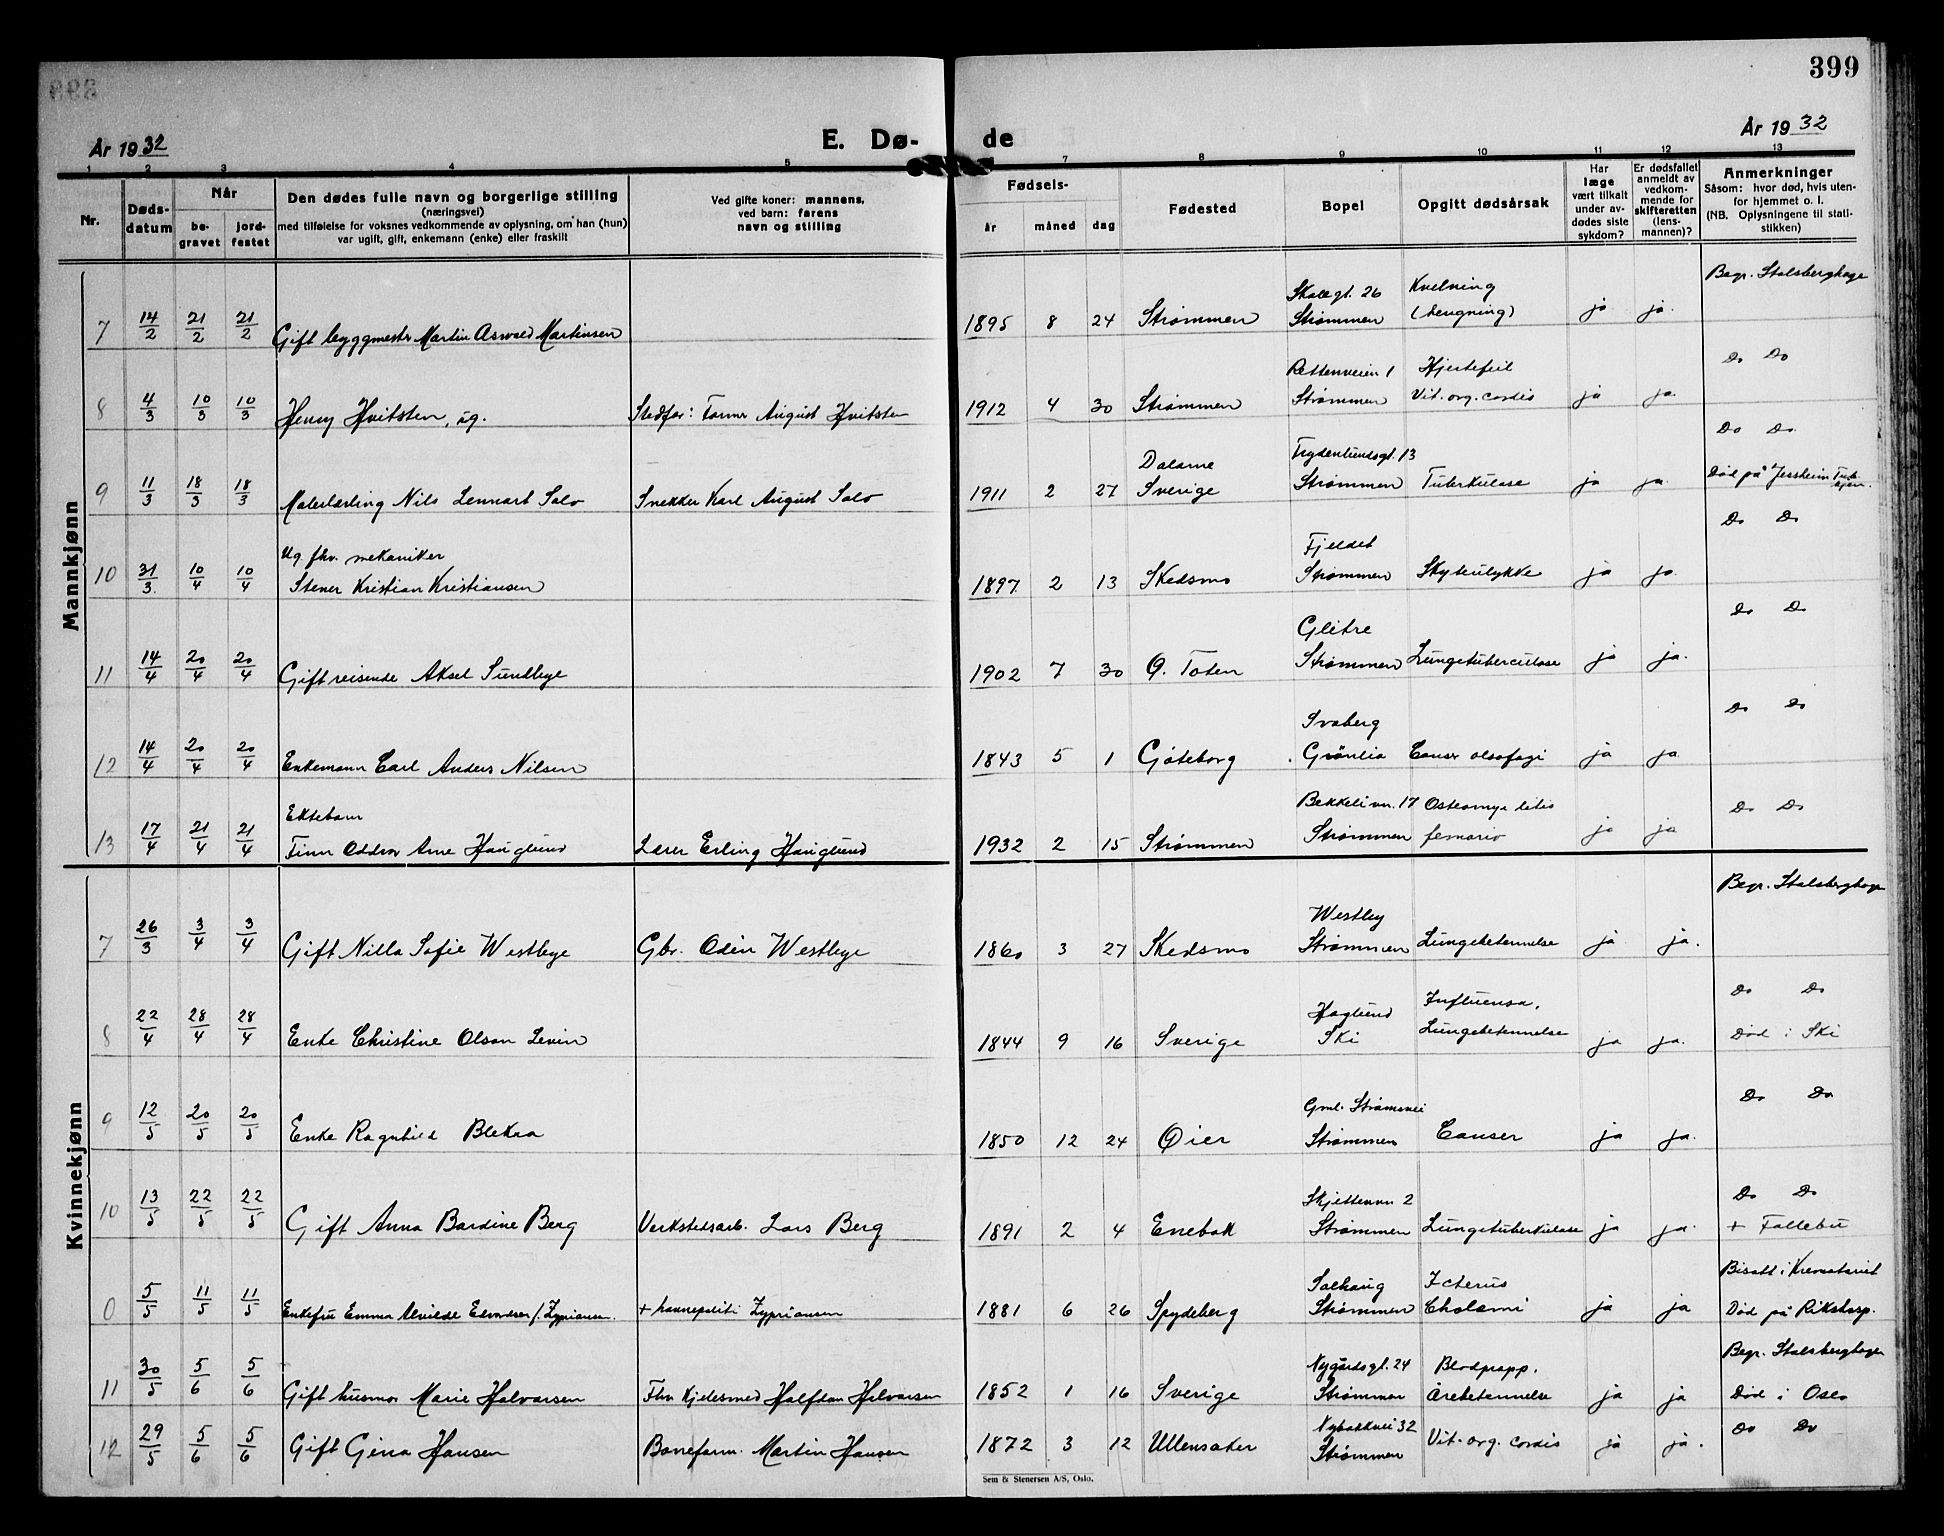 399
År 1932
E. Dø- de
År 1932
1 2 3 4 5 7 8 9 10 11 12 13
Nr.
Døds-
datum
Når
be-
gravet
jord-
festet
Den dødes fulle navn og borgerlige stilling
(næringsvei)
med tilføielse for voksnes vedkommende av oplysning, om han (hun)
var ugift, gift, enkemann (enke) eller fraskilt
Ved gifte koner: mannens,
ved barn: farens
navn og stilling
Fødsels-
år måned dag
Fødested
Bopel
Opgitt dødsårsak
Har
læge
vært tilkalt
under av-
dødes siste
sykdom?
Er dødsfallet
anmeldt av
vedkom-
mende for
skifteretten
(lens-
mannen)?
Anmerkninger
Såsom: hvor død, hvis uten-
for hjemmet o. l.
(NB. Oplysningene til stati-
stikken)
Mannkjønn
Begr. Stalsberghage
Skolegt. 26 Kvelning
7 14/2 21/2 21/2 Gift byggmestr Martin Asvald Martinsen 1895 8 24 Strømmen Strømmen (hengning) ja ja.
Rettenveien 1 Hjertefeil Do Do
8 4/3 10/3 10/3 Henry Hvitsten, ug. Stedfar: Former August Hvitsten 1912 4 30 Strømmen Strømmen Vit. org. cordis ja ja.
Do Do.
Dalarne Frydenlundsgt. 13
9 11/3 18/3 18/3 Malerlærling Nils Lennart Salo Snekker Karl August Salo 1911 2 27 Sverige Strømmen Tuberkulose ja ja. Død på Jessheim Tub.
hjem.
Do Do
Ug. fhv. mekaniker Fjeldet
10 31/3 10/4 10/4 Stener Kristian Kristiansen 1897 2 13 Skedsmo Strømmen Skyteulykke ja ja.
Do Do
Glitre
11 14/4 20/4 20/4 Gift reisende Aksel Sundbye 1902 7 30 Ø. Toten Strømmen Lungetuberculose ja ja.
Do Do
Svaberg
12 14/4 20/4 20/4 Enkemann Carl Anders Nilsen 1843 5 1 Gøteborg Grønlia Cancer olsofagi ja ja.
Ektebarn Bekkelivn. 17 Osteomye litis Do Do
13 17/4 21/4 21/4 Finn Oddvar Arne Hauglund Lærer Erling Hauglund 1932 2 15 Strømmen Strømmen femoris ja ja
Kvinnekjønn
Begr. Stalsberghage
Westby
7 26/3 3/4 3/4 Gift Nilla Sofie Westbye Gbr. Odin Westbye 1860 3 27 Skedsmo Strømmen Lungebetennelse ja ja.
Haglund Influensa, Do Do
8 22/4 28/4 28/4 Enke Christine Olson Levin 1844 9 16 Sverige Ski Lungebetennelse ja ja. Død i Ski
Gml. Strømsvei Do Do
9 12/5 20/5 20/5 Enke Ragnhild Blekra 1850 12 24 Øier Strømmen Canser ja ja.
Skjettenvn 2 Do Do
10 13/5 22/5 22/5 Gift Anna Bardine Berg Verkstedsarb. Lars Berg 1891 2 4 Enebak Strømmen Lungetuberkulose ja ja. + Follebu
Solhaug Icterus Bisatt i Krematoriet
0 5/5 11/5 11/5 Enkefru Emma Alvilde Edvardsen f. Zypriansen. + havnepoliti Zypriansen 1881 6 26 Spydeberg Strømmen Cholemi ja ja Død på Rikshosp.
Nygårdsgt. 24 Blodpropp, Begr. Stalsberghagen
11 30/5 5/6 5/6 Gift husmor Marie Halvorsen Fhv. kjelesmed Halfdan Halvorsen 1852 1 16 Sverige Strømmen Årebetennelse ja ja Død i Oslo
Nybakkvei 32 Do Do
12 29/5 5/6 5/6 Gift Gina Hansen Bonnefarm. Martin Hansen 1872 3 12 Ullensaker Strømmen Vit. org. cordis ja ja.
Sem & Stenersen A/S, Oslo.